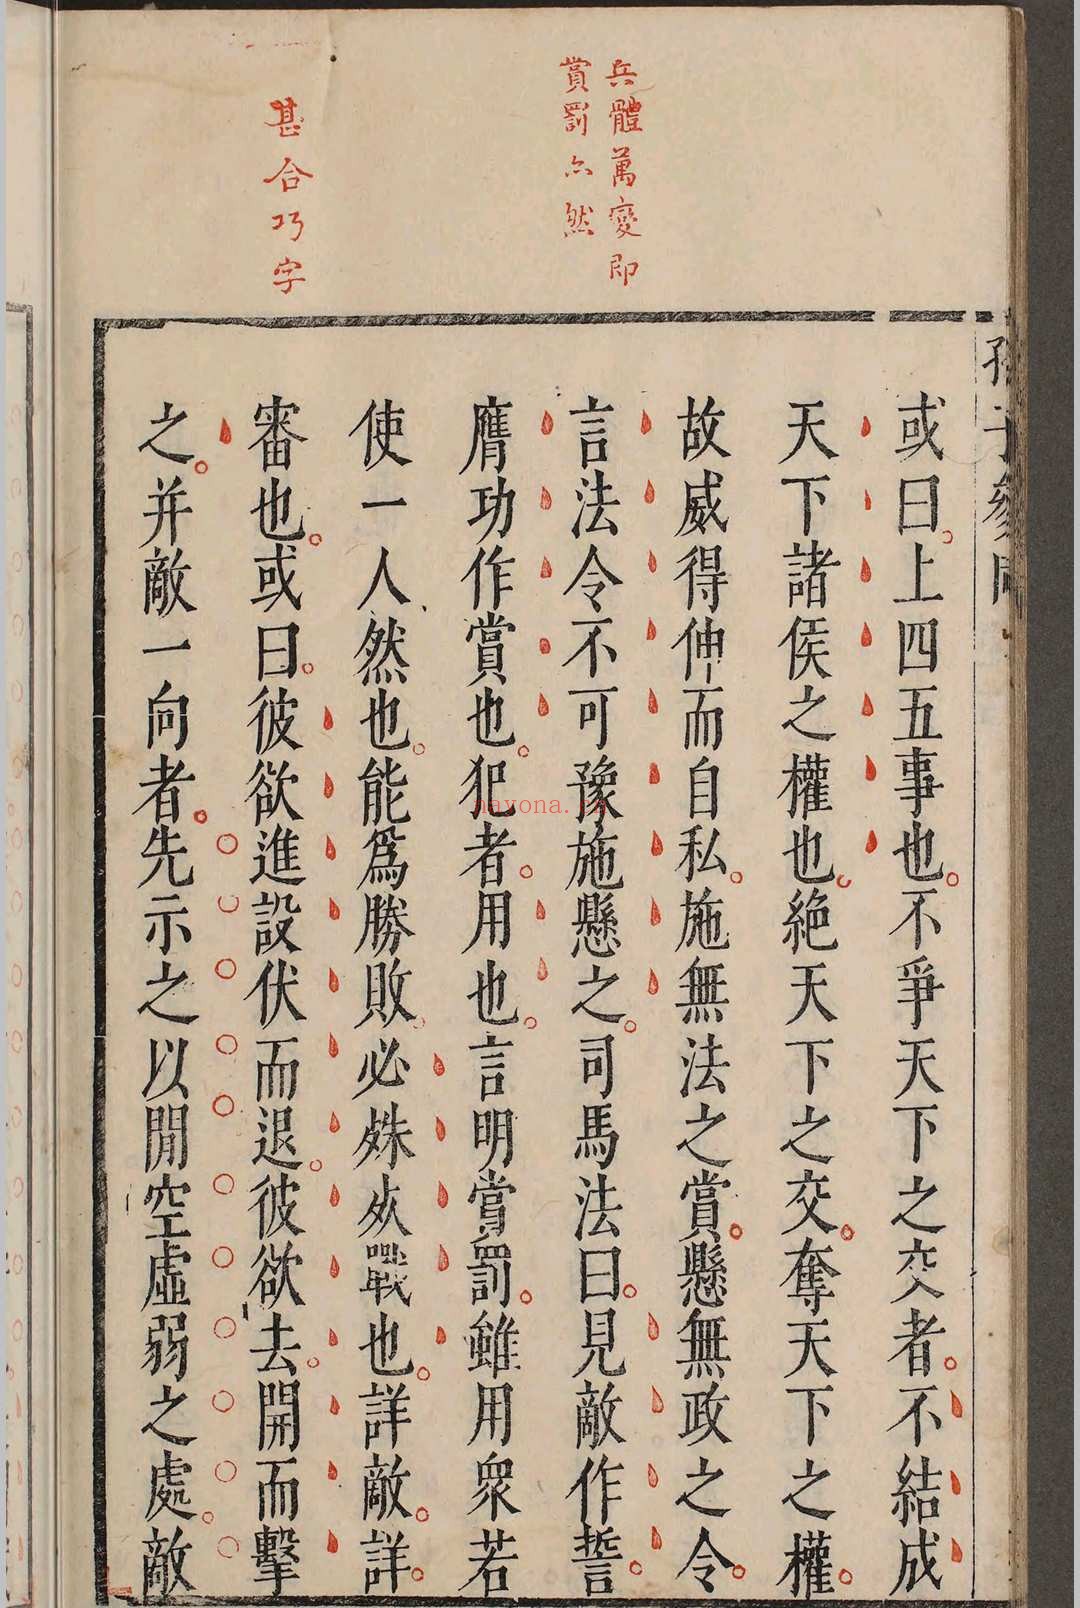 兵體萬變即
賞罰亦然
甚合巧字
孫子參同
或曰上四五事也不爭天下之交者不結成
天下諸侯之權也絕天下之交奪天下之權
故威得伸而自私施無法之賞懸無政之令
言法令不可豫施懸之司馬法曰見敵作誓
膺功作賞也犯者用也言明賞罰雖用衆若
使一人然也能爲勝敗必殊死戰也詳敵詳
審也或曰彼欲進設伏而退彼欲去開而擊
之并敵一向者先示之以閒空虛弱之處敵
nayona.